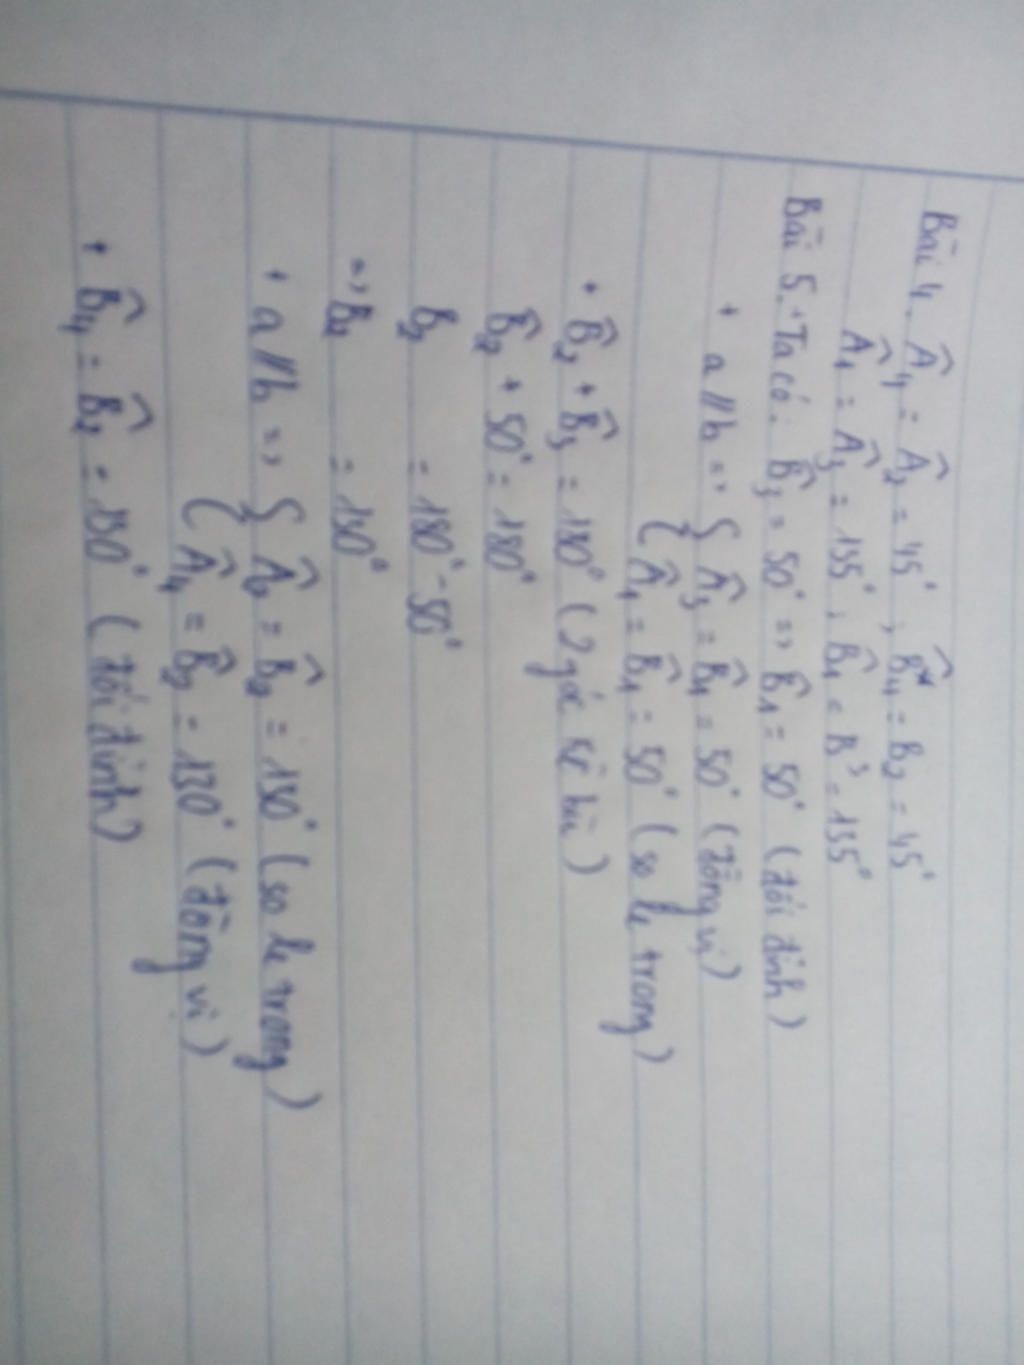 Bài 4. Â4 = Â2 = 45°, B̂4 = B2 = 45°
Â1 = Â3 = 135°, B̂1 = B3 = 135°
Bài 5. Ta có: B̂3 = 50° => B̂1 = 50° (đối đỉnh)
+ a // b => { Â3 = B̂1 = 50° (đồng vị)
{ Â1 = B̂1 = 50° (so le trong)
+ B̂2 + B̂3 = 180° (2 góc kề bù)
B̂2 + 50° = 180°
B2 = 180° - 50°
=> B2 = 130°
+ a // b => { Â2 = B̂2 = 130° (so le trong)
{ Â4 = B̂2 = 130° (đồng vị)
+ B̂4 = B̂2 = 130° (đối đỉnh)